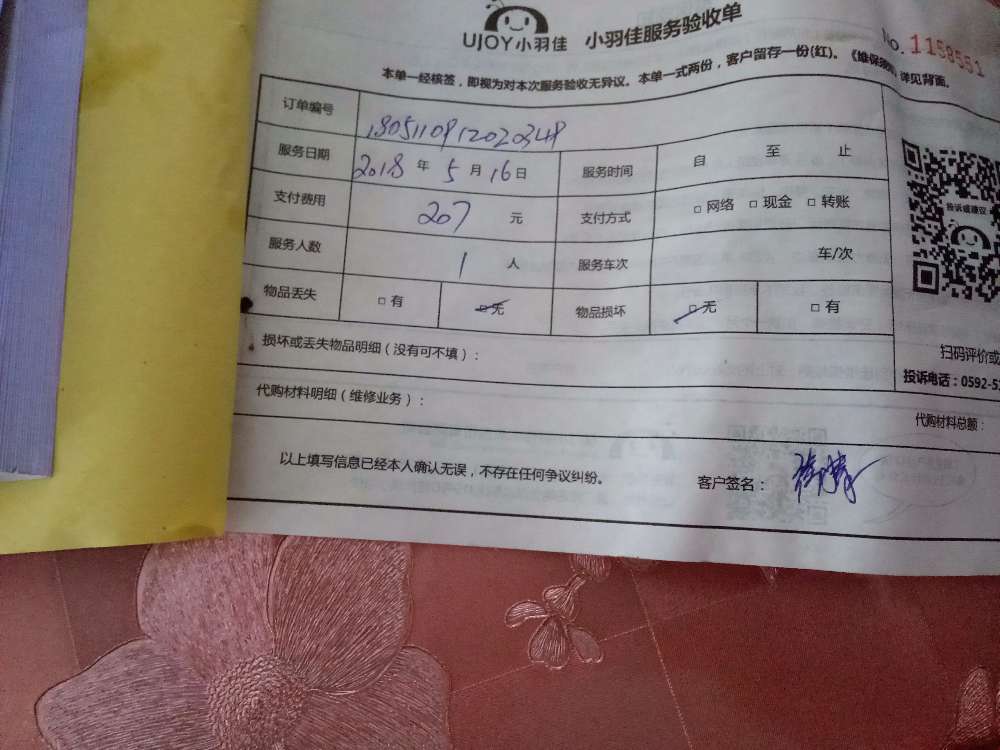 UJOY小羽佳 小羽佳服务验收单
No. 1158551
本单一经核签，即视为对本次服务验收无异议。本单一式两份，客户留存一份(红)。《维保须知》详见背面。
订单编号 180511091202034
服务日期 2018 年 5 月 16 日 服务时间 自 至 止
支付费用 207 元 支付方式 □ 网络 □ 现金 □ 转账
服务人数 1 人 服务车次 车/次
物品丢失 □ 有 □ 无 物品损坏 □ 无 □ 有
投诉或建议
扫码评价或
损坏或丢失物品明细（没有可不填）：
投诉电话：0592-5
代购材料明细（维修业务）：
代购材料总额：
以上填写信息已经本人确认无误，不存在任何争议纠纷。 客户签名：